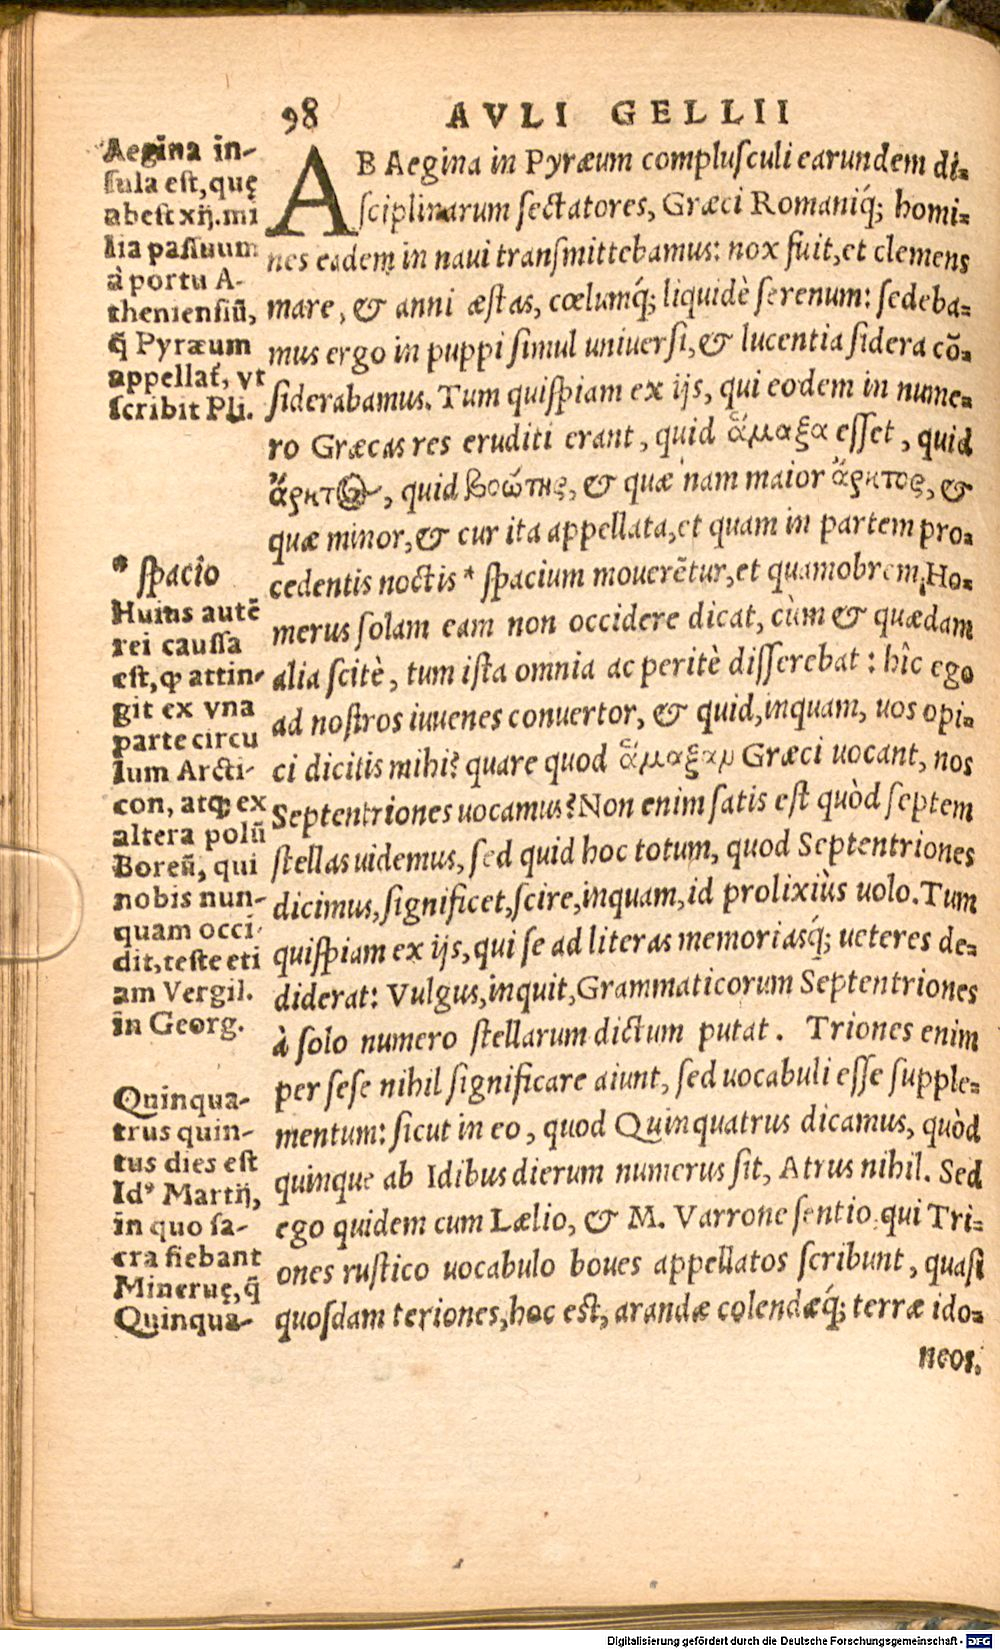 98 AVLI GELLII
Aegina in-
sula est, quę
abest xij. mi
lia passuum
à portu A-
theniensiū,
q̄ Pyræum
appellat̃, vt
scribit Pli.
AB Aegina in Pyræum complusculi earundem di-
sciplinarum sectatores, Græci Romaniq́; homi-
nes eadem in naui transmittebamus: nox fuit, et clemens
mare, & anni æstas, cœlumq́; liquidè serenum: sedeba-
mus ergo in puppi simul uniuersi, & lucentia sidera cō-
siderabamus. Tum quispiam ex ijs, qui eodem in nume-
ro Græcas res eruditi erant, quid ἅμαξα esset, quid
ἄρκτος, quid βοώτης, & quæ nam maior ἄρκτος, &
quæ minor, & cur ita appellata, et quam in partem pro-
cedentis noctis * spacium mouerẽtur, et quamobrem Ho-
merus solam eam non occidere dicat, cùm & quædam
alia scitè, tum ista omnia ac peritè disserebat: hîc ego
ad nostros iuuenes conuertor, & quid, inquam, uos opi-
ci dicitis mihi? quare quod ἅμαξαν Græci uocant, nos
Septentriones uocamus? Non enim satis est quòd septem
stellas uidemus, sed quid hoc totum, quod Septentriones
dicimus, significet, scire, inquam, id prolixiùs uolo. Tum
quispiam ex ijs, qui se ad literas memoriasq́; ueteres de-
diderat: Vulgus, inquit, Grammaticorum Septentriones
à solo numero stellarum dictum putat. Triones enim
per sese nihil significare aiunt, sed uocabuli esse supple-
mentum: sicut in eo, quod Quinquatrus dicamus, quòd
quinque ab Idibus dierum numerus sit, Atrus nihil. Sed
ego quidem cum Lælio, & M. Varrone sentio, qui Tri-
ones rustico uocabulo boues appellatos scribunt, quasi
quosdam teriones, hoc est, arandæ colendæq́; terræ ido-
neos.
* spacio
Huius autē
rei caussa
est, ꝙ attin-
git ex vna
parte circu
lum Arcti-
con, atqꝫ ex
altera polū
Boreū, qui
nobis nun-
quam occi-
dit, teste eti
am Vergil.
in Georg.
Quinqua-
trus quin-
tus dies est
Idꝰ Martij,
in quo sa-
cra fiebant
Mineruę, q̃
Quinqua-
Digitalisierung gefördert durch die Deutsche Forschungsgemeinschaft - DFG